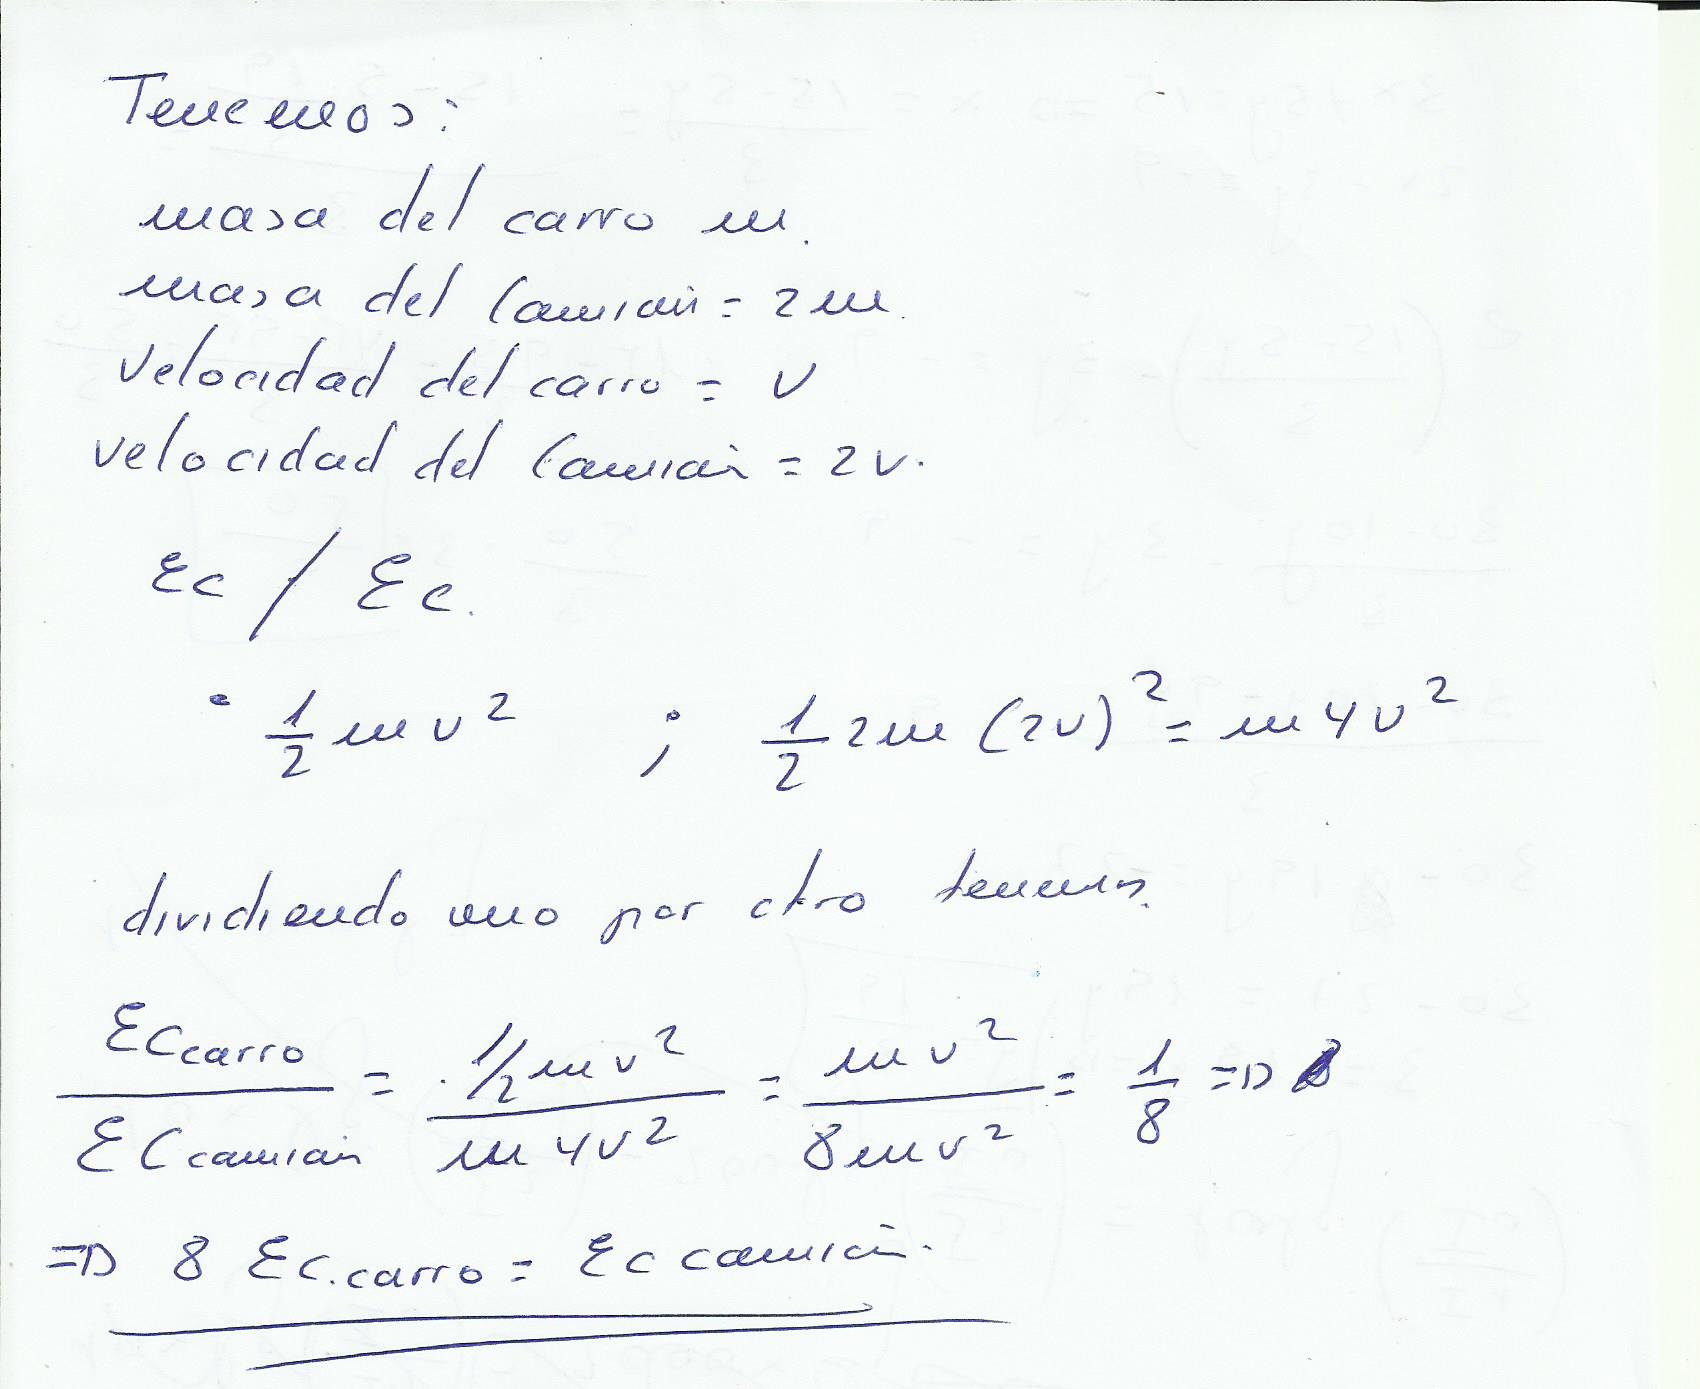 Tenemos:
masa del carro m.
masa del Camión = 2m.
velocidad del carro = v
velocidad del Camión = 2v.
Ec / Ec.
• 1/2 m v² ; 1/2 2m (2v)² = m 4 v²
dividiendo uno por otro tenemos.
Ec carro / Ec camión = 1/2 m v² / m 4 v² = m v² / 8 m v² = 1/8 =>
=> 8 Ec. carro = Ec camión.